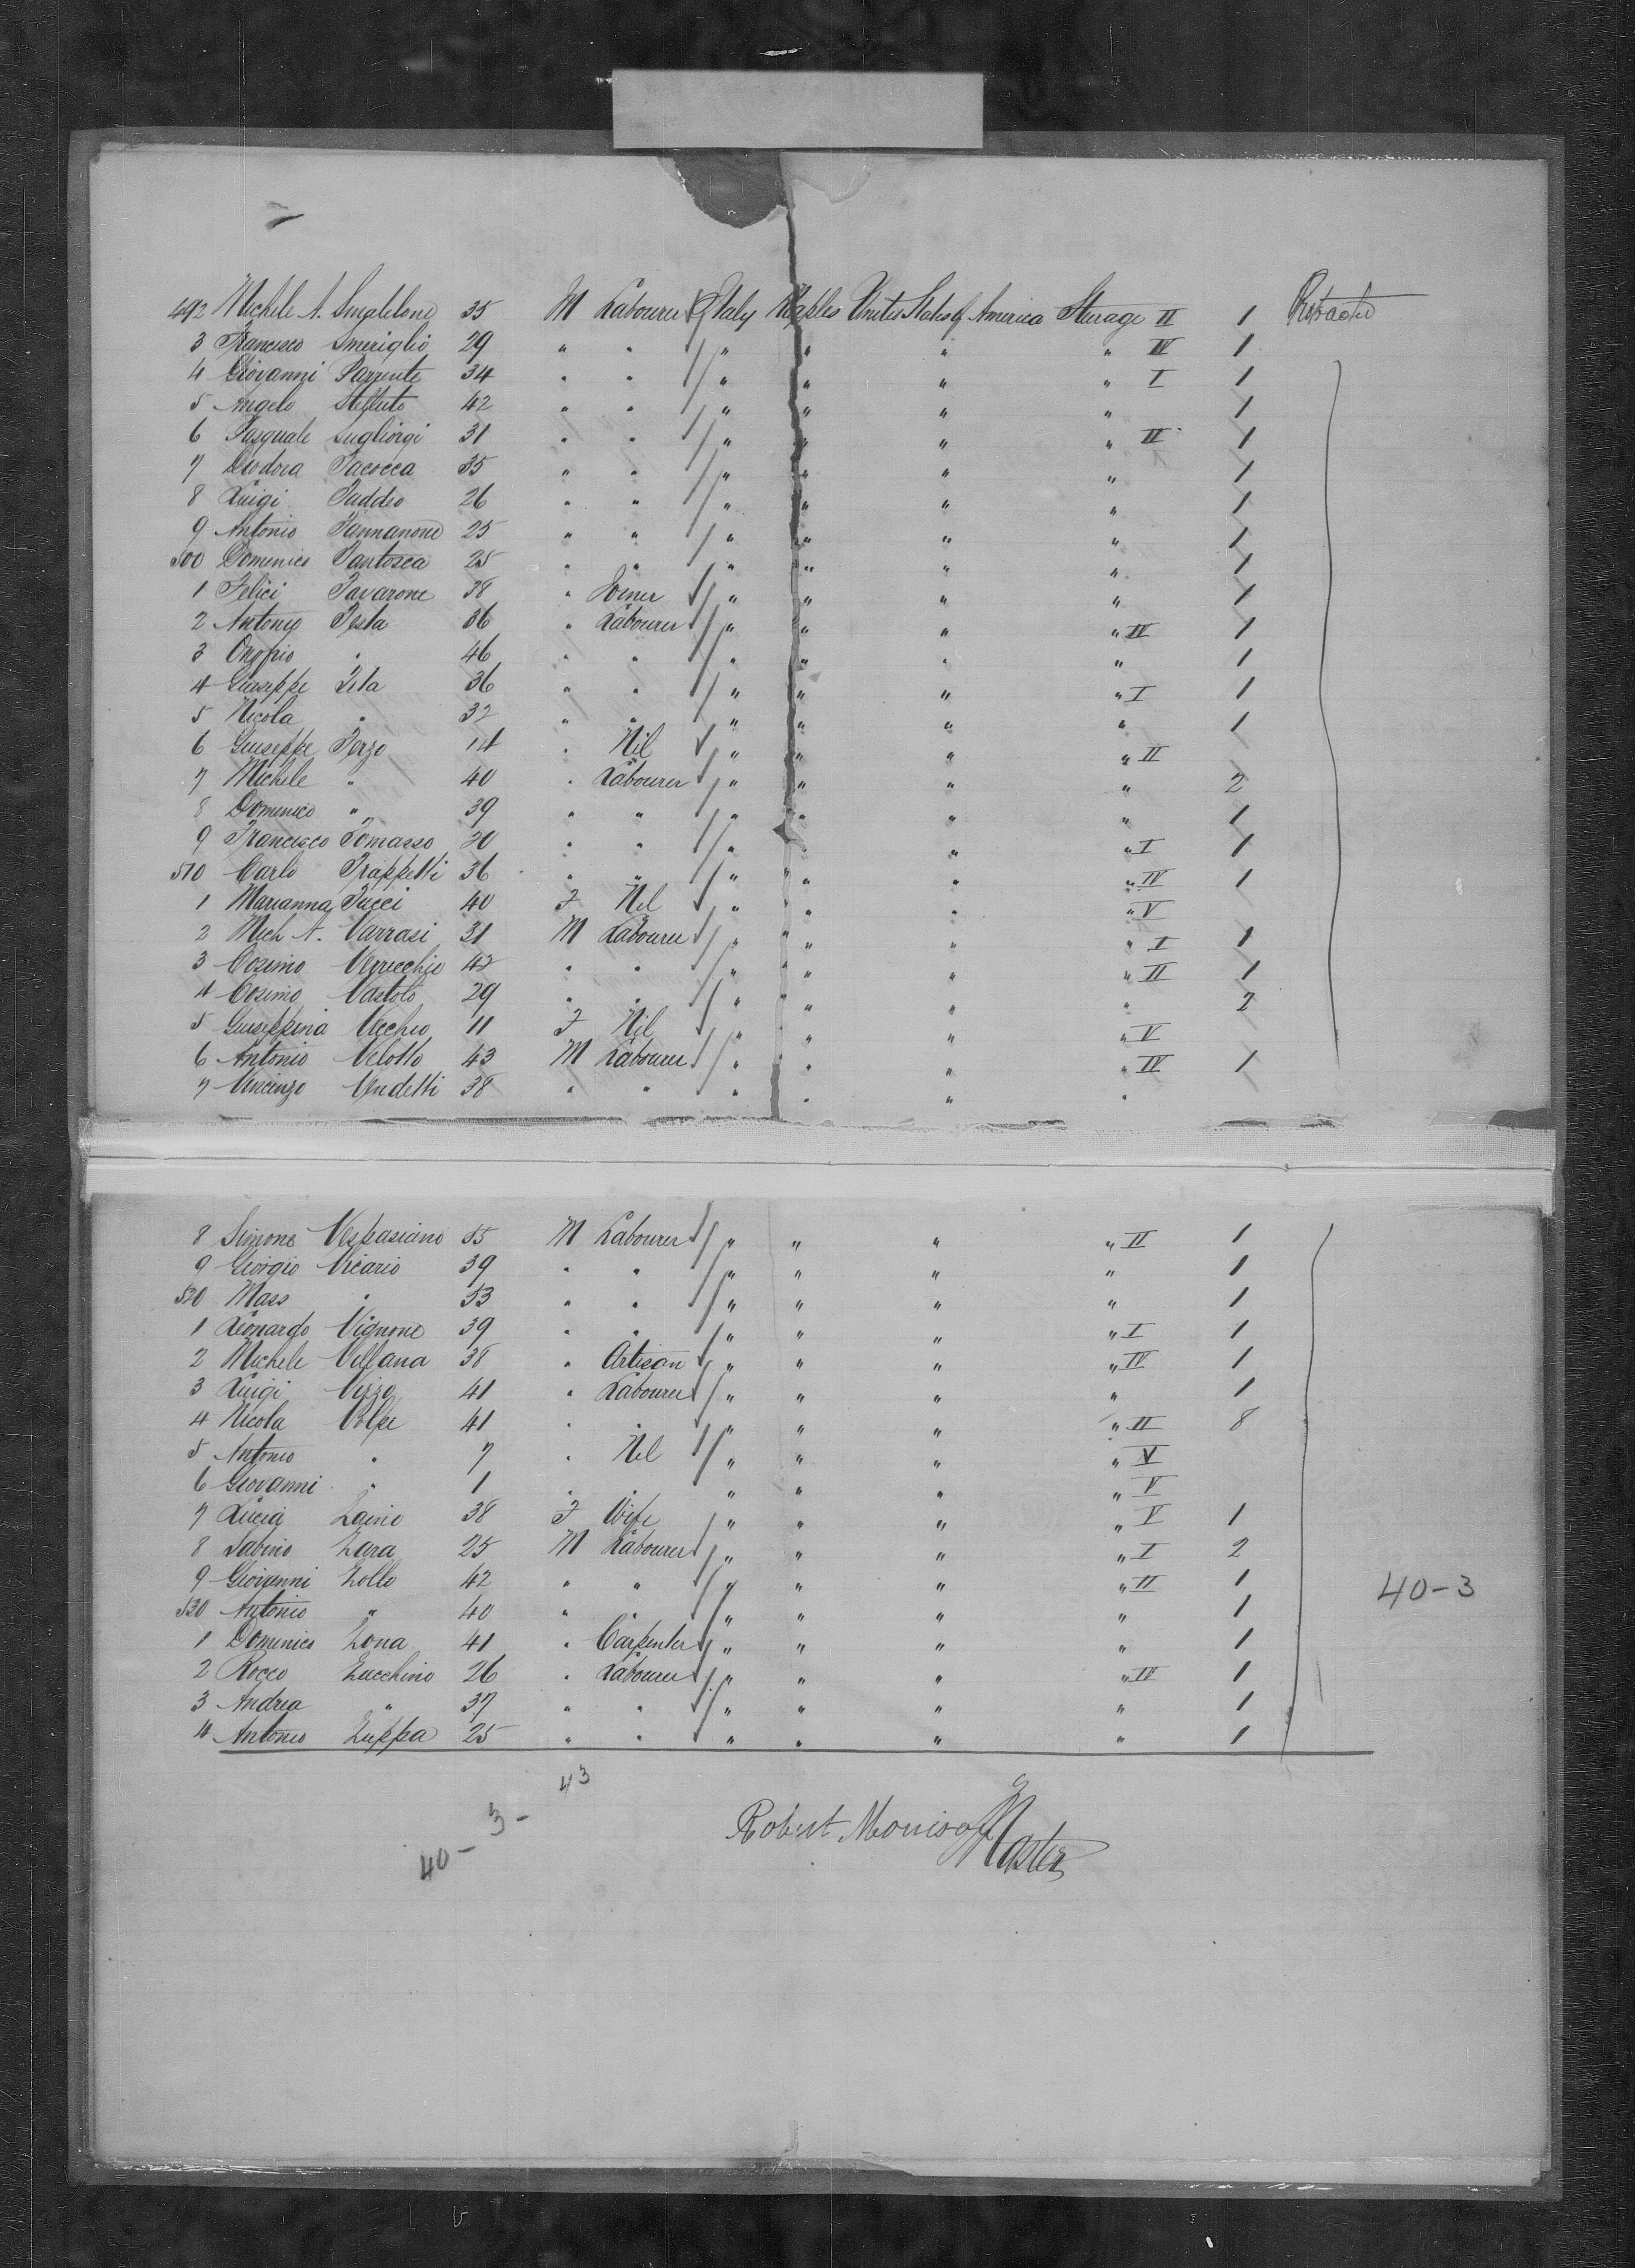 492 Michele A. 35 M Labourer Italy Naples United States of America Steerage II 1 Protracted
3 Francesco Smeriglio 29 " " " " " " IV 1
4 Giovanni Parrente 34 " " " " " " I 1
5 Angelo Stefluto 42 " " " " " " 1
6 Pasquale Sugliorgi 31 " " " " " " II 1
7 Tacocca 35 " " " " " " 1
8 Luigi Taddeo 26 " " " " " " 1
9 Antonio Tannanone 25 " " " " " " 1
500 Domenico Tantosca 25 " " " " " " 1
1 Felici Tavarone 38 " Joiner " " " " 1
2 Antonio Testa 36 " Labourer " " " " II 1
3 Onofrio " 46 " " " " " " 1
4 Giuseppe Teta 36 " " " " " " I 1
5 Nicola " 32 " " " " " " 1
6 Giuseppe Terzo 14 " Nil " " " " II
7 Michele " 40 " Labourer " " " " 2
8 Domenico " 39 " " " " " " 1
9 Francesco Tomasso 20 " " " " " " I 1
510 Carlo Trappetti 36 " " " " " " IV 1
1 Marianna Tucci 40 F Nil " " " " V
2 Mich A. Varrasi 31 M Labourer " " " " I 1
3 Cosimo Verrecchio 42 " " " " " " II 1
4 Cosimo Vastolo 29 " " " " " " 2
5 Giuseppina Vecchio 11 F Nil " " " " V
6 Antonio Velotto 43 M Labourer " " " " IV 1
7 Vincenzo Vendetti 38 " " " " " "
8 Simone Vespasiano 55 M Labourer " " " " II 1
9 Giorgio Vicario 39 " " " " " " 1
520 Mass " 53 " " " " " " 1
1 Leonardo Vignone 39 " " " " " " I 1
2 Michele Villana 38 " Artisan " " " " IV 1
3 Luigi Vizzo 41 " Labourer " " " " 1
4 Nicola Volpe 41 " " " " " " II 8
5 Antonio " 7 " Nil " " " " V
6 Giovanni " 1 " " " " " " V
7 Lucia Zaino 38 F Wife " " " " V 1
8 Sabino Zara 25 M Labourer " " " " I 2
9 Giovanni Zollo 42 " " " " " " II 1
40-3
530 Antonio " 40 " " " " " " 1
1 Domenico Zona 41 " Carpenter " " " " 1
2 Rocco Zucchino 26 " Labourer " " " " IV 1
3 Andrea " 37 " " " " " " 1
4 Antonio Zuppa 25 " " " " " " 1
43
40 - 3 -
Robert Morrison Master